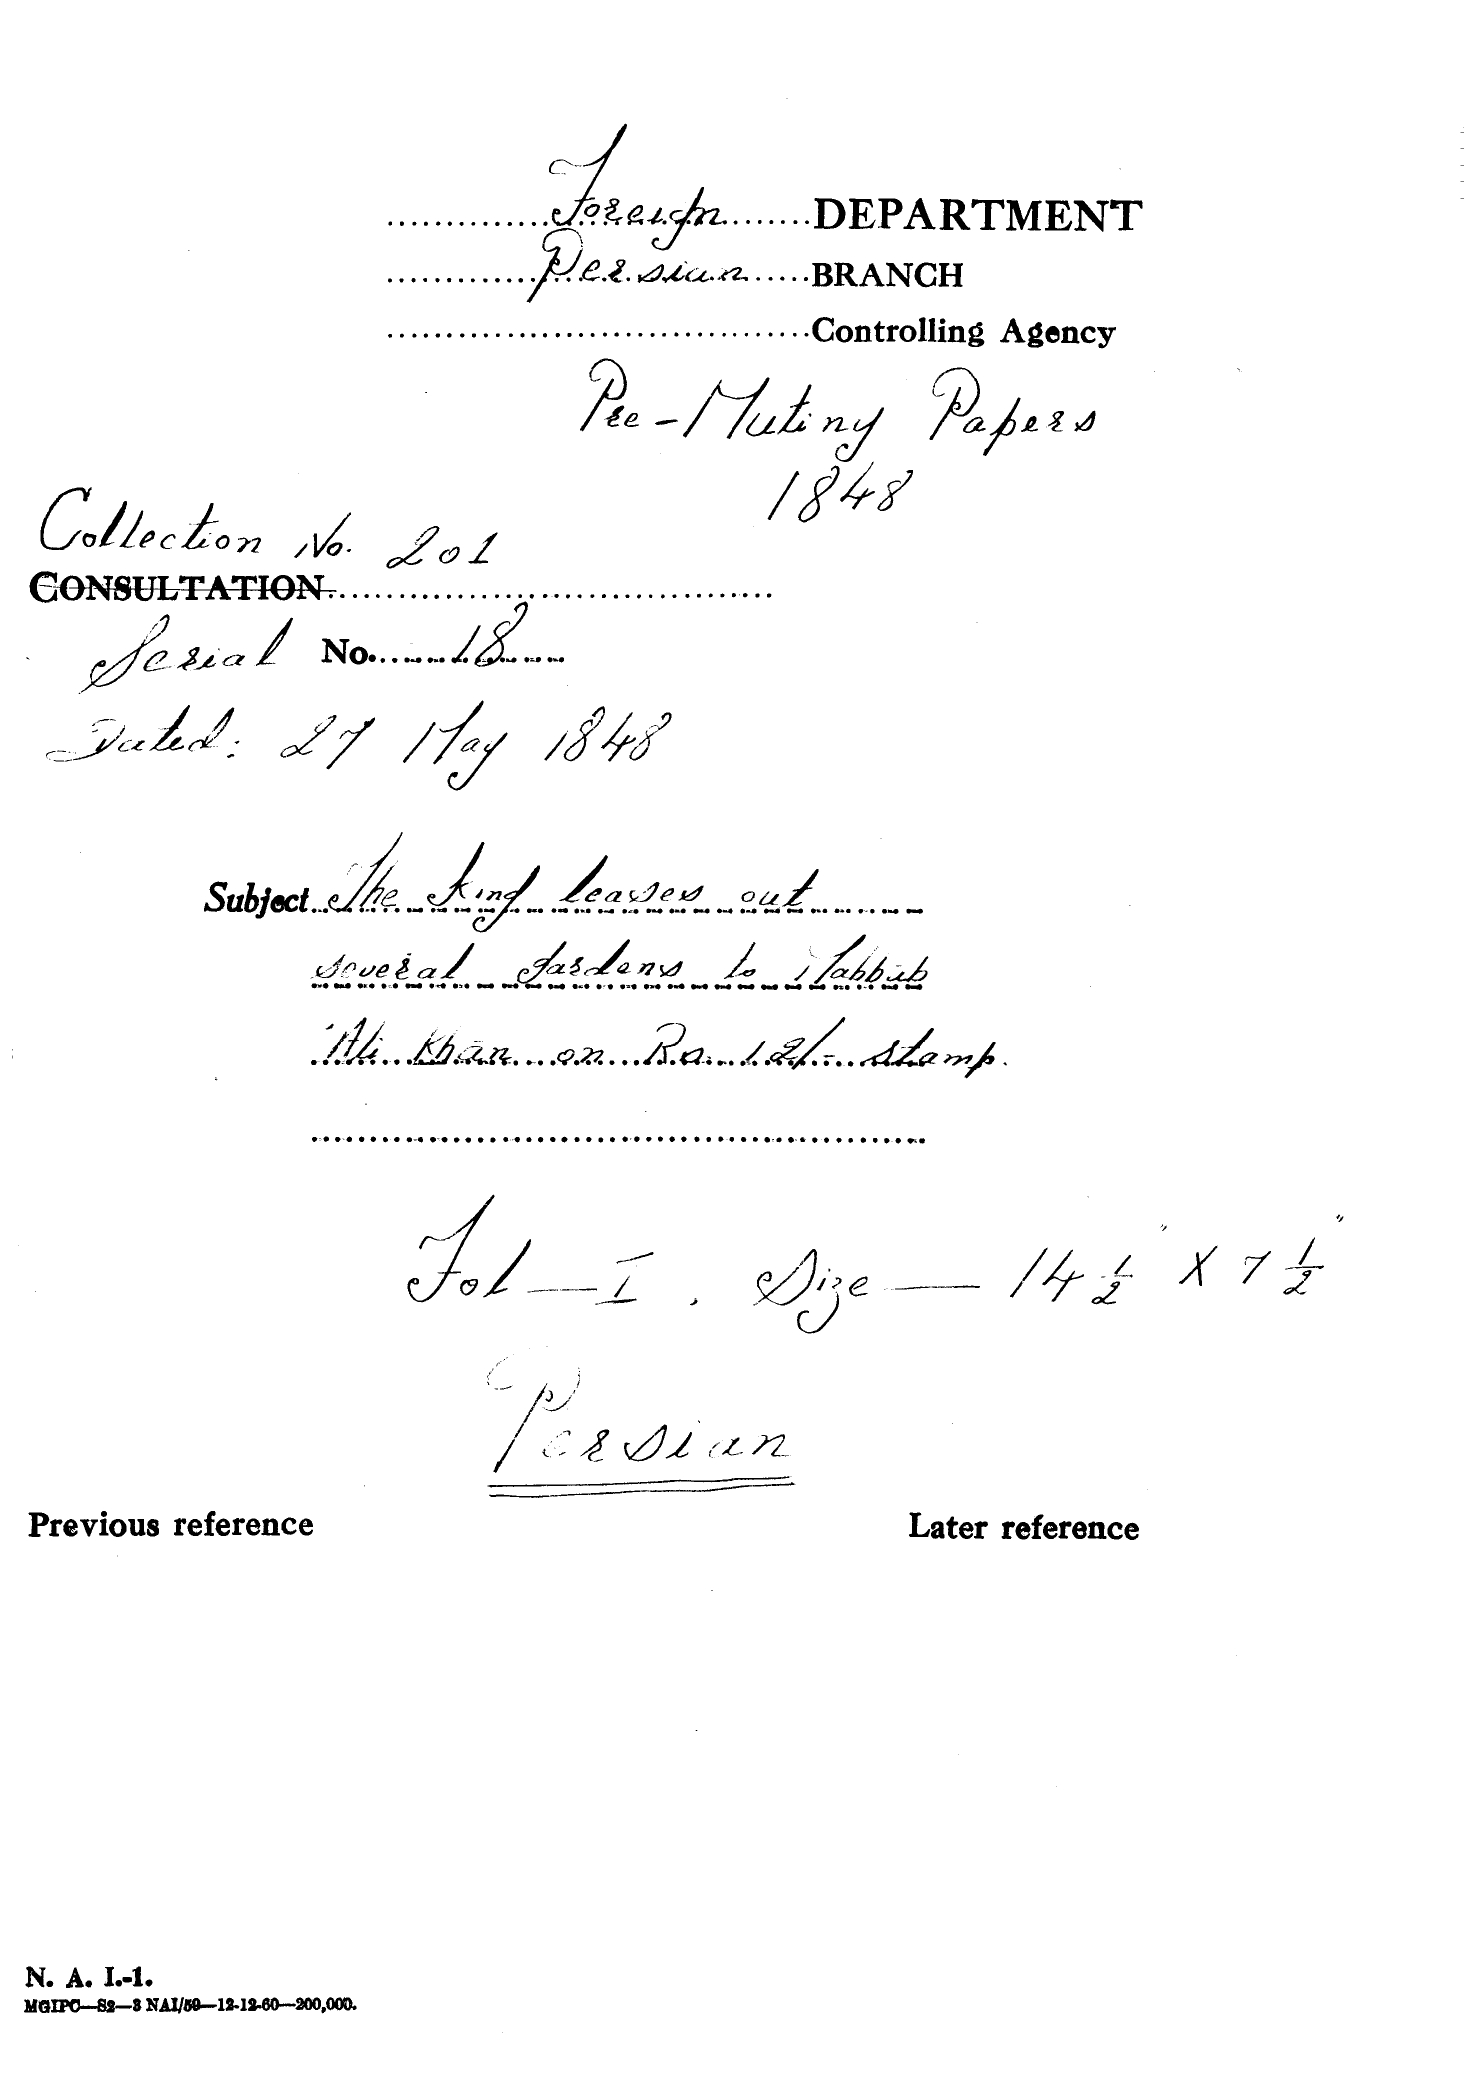 Foreign DEPARTMENT
Persian BRANCH
Controlling Agency
Pre-Mutiny Papers
1848
Collection No. 201
CONSULTATION
Serial No. 18
Dated: 27 May 1848
Subject The King leases out
several gardens to Mahbub
'Ali Khān on Rs. 12/- stamp.
Fol — I. Size — 14 1/2" X 7 1/2"
Persian
Previous reference Later reference
N. A. I.-1.
MGIPC—S2—3 NAI/59—12-12-60—200,000.